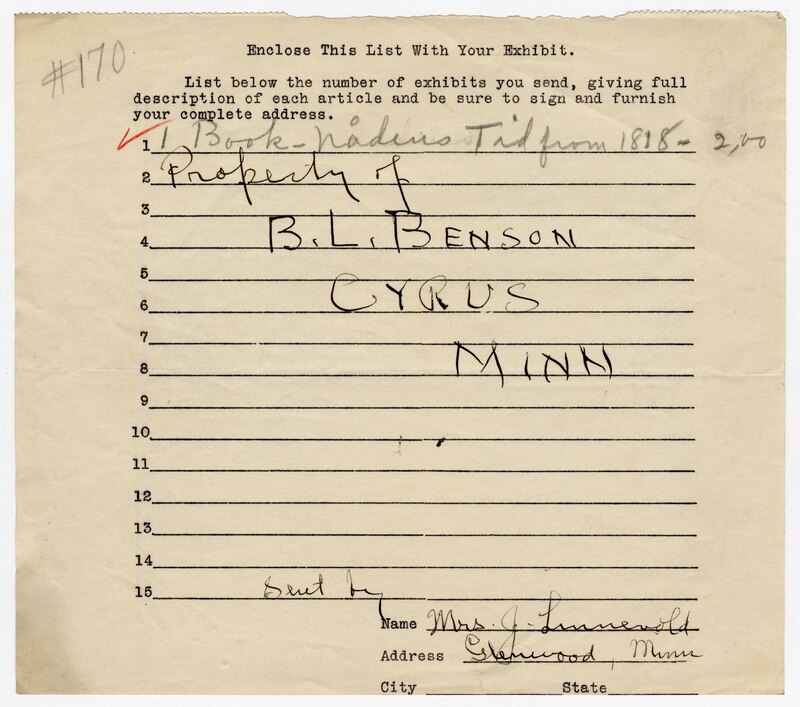 #170
Enclose This List With Your Exhibit.
List below the number of exhibits you send, giving full
description of each article and be sure to sign and furnish
your complete address.
1 1 Book - Nådens Tid from 1818 - 2,00
2 Property of
3
4 B. L. BENSON
5
6 CYRUS
7
8 MINN
9
10
11
12
13
14
15 Sent by
Name Mrs. J. Linnevold
Address Glenwood, Minn
City State